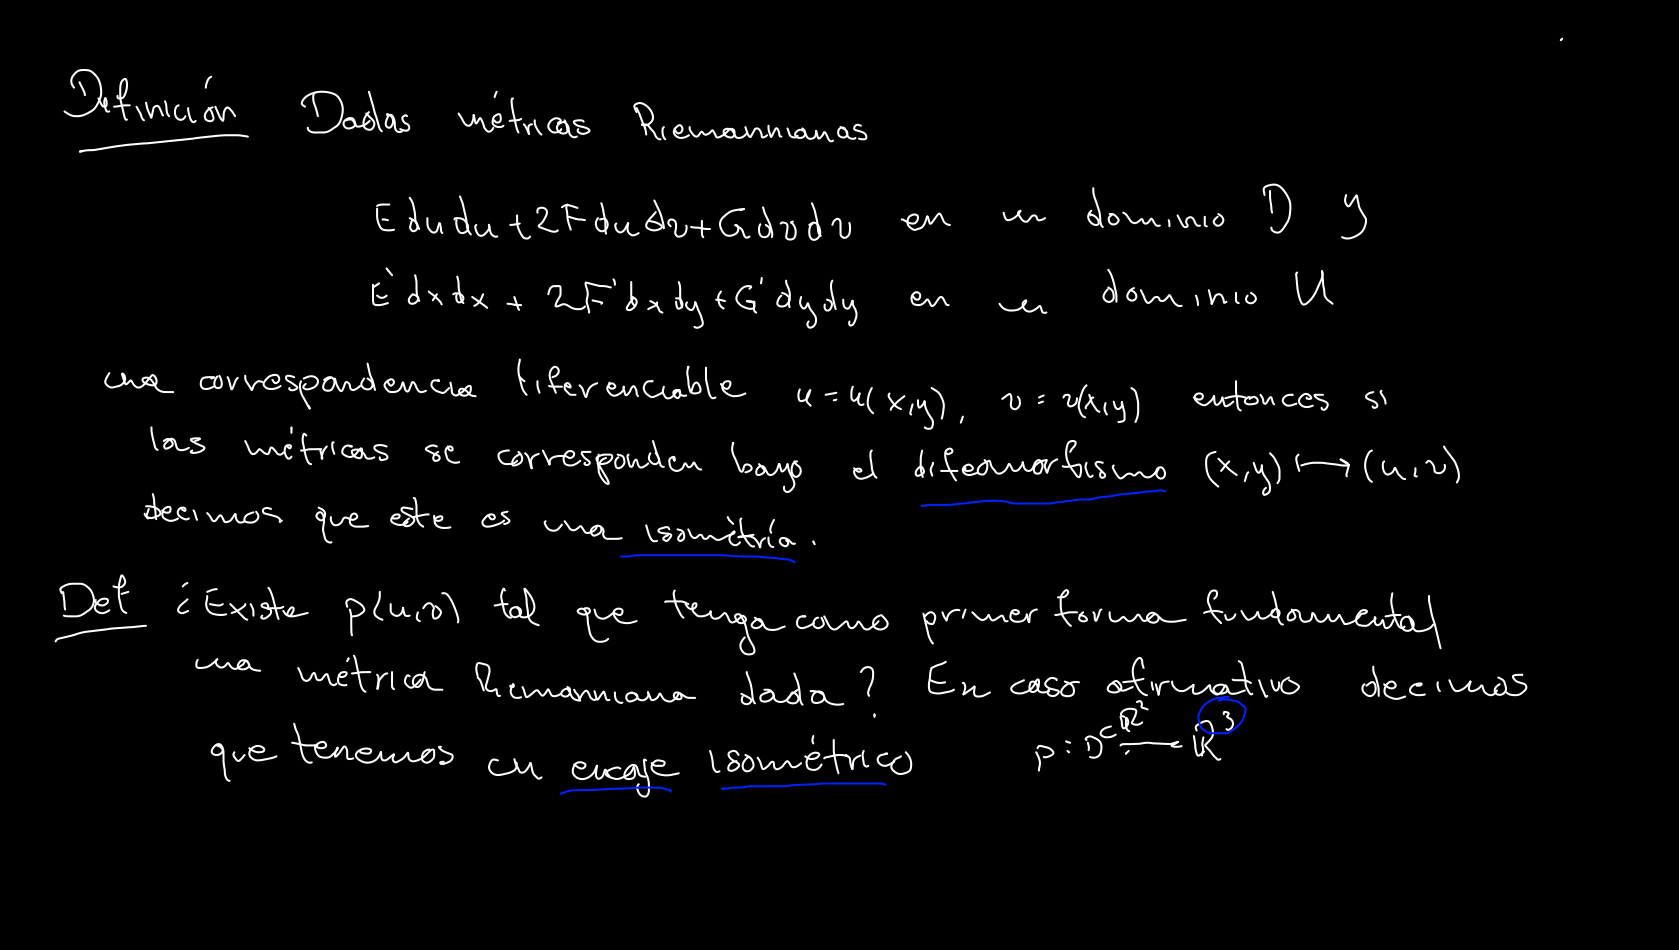 Definición Dadas métricas Riemannianas
E du du + 2F du dv + G dv dv en un dominio D y
E' dx dx + 2F' dx dy + G' dy dy en un dominio U
una correspondencia diferenciable u = u(x,y), v = v(x,y) entonces si
las métricas se corresponden bajo el difeomorfismo (x,y) ⟼ (u,v)
decimos que este es una isométría.
Def ¿Existe p(u,v) tal que tenga como primer forma fundamental
una métrica Riemanniana dada? En caso afirmativo decimos
que tenemos un encaje isométrico p : D ⊂ ℝ² → ℝ³